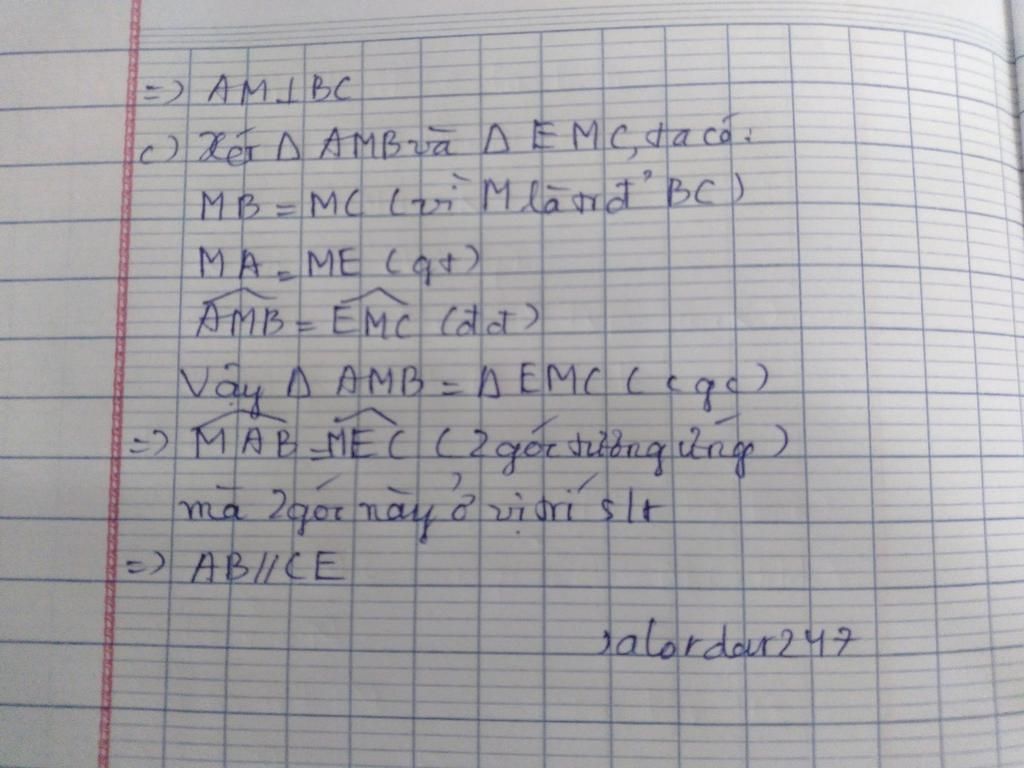 => AM⊥BC
c) Xét Δ AMB và Δ EMC, ta có:
MB = MC (vì M là trđ' BC)
MA = ME (gt)
AMB = EMC (đđ)
Vậy Δ AMB = Δ EMC (cgc)
=> MAB = MEC (2 góc tương ứng)
mà 2 góc này ở vị trí slt
=> AB//CE